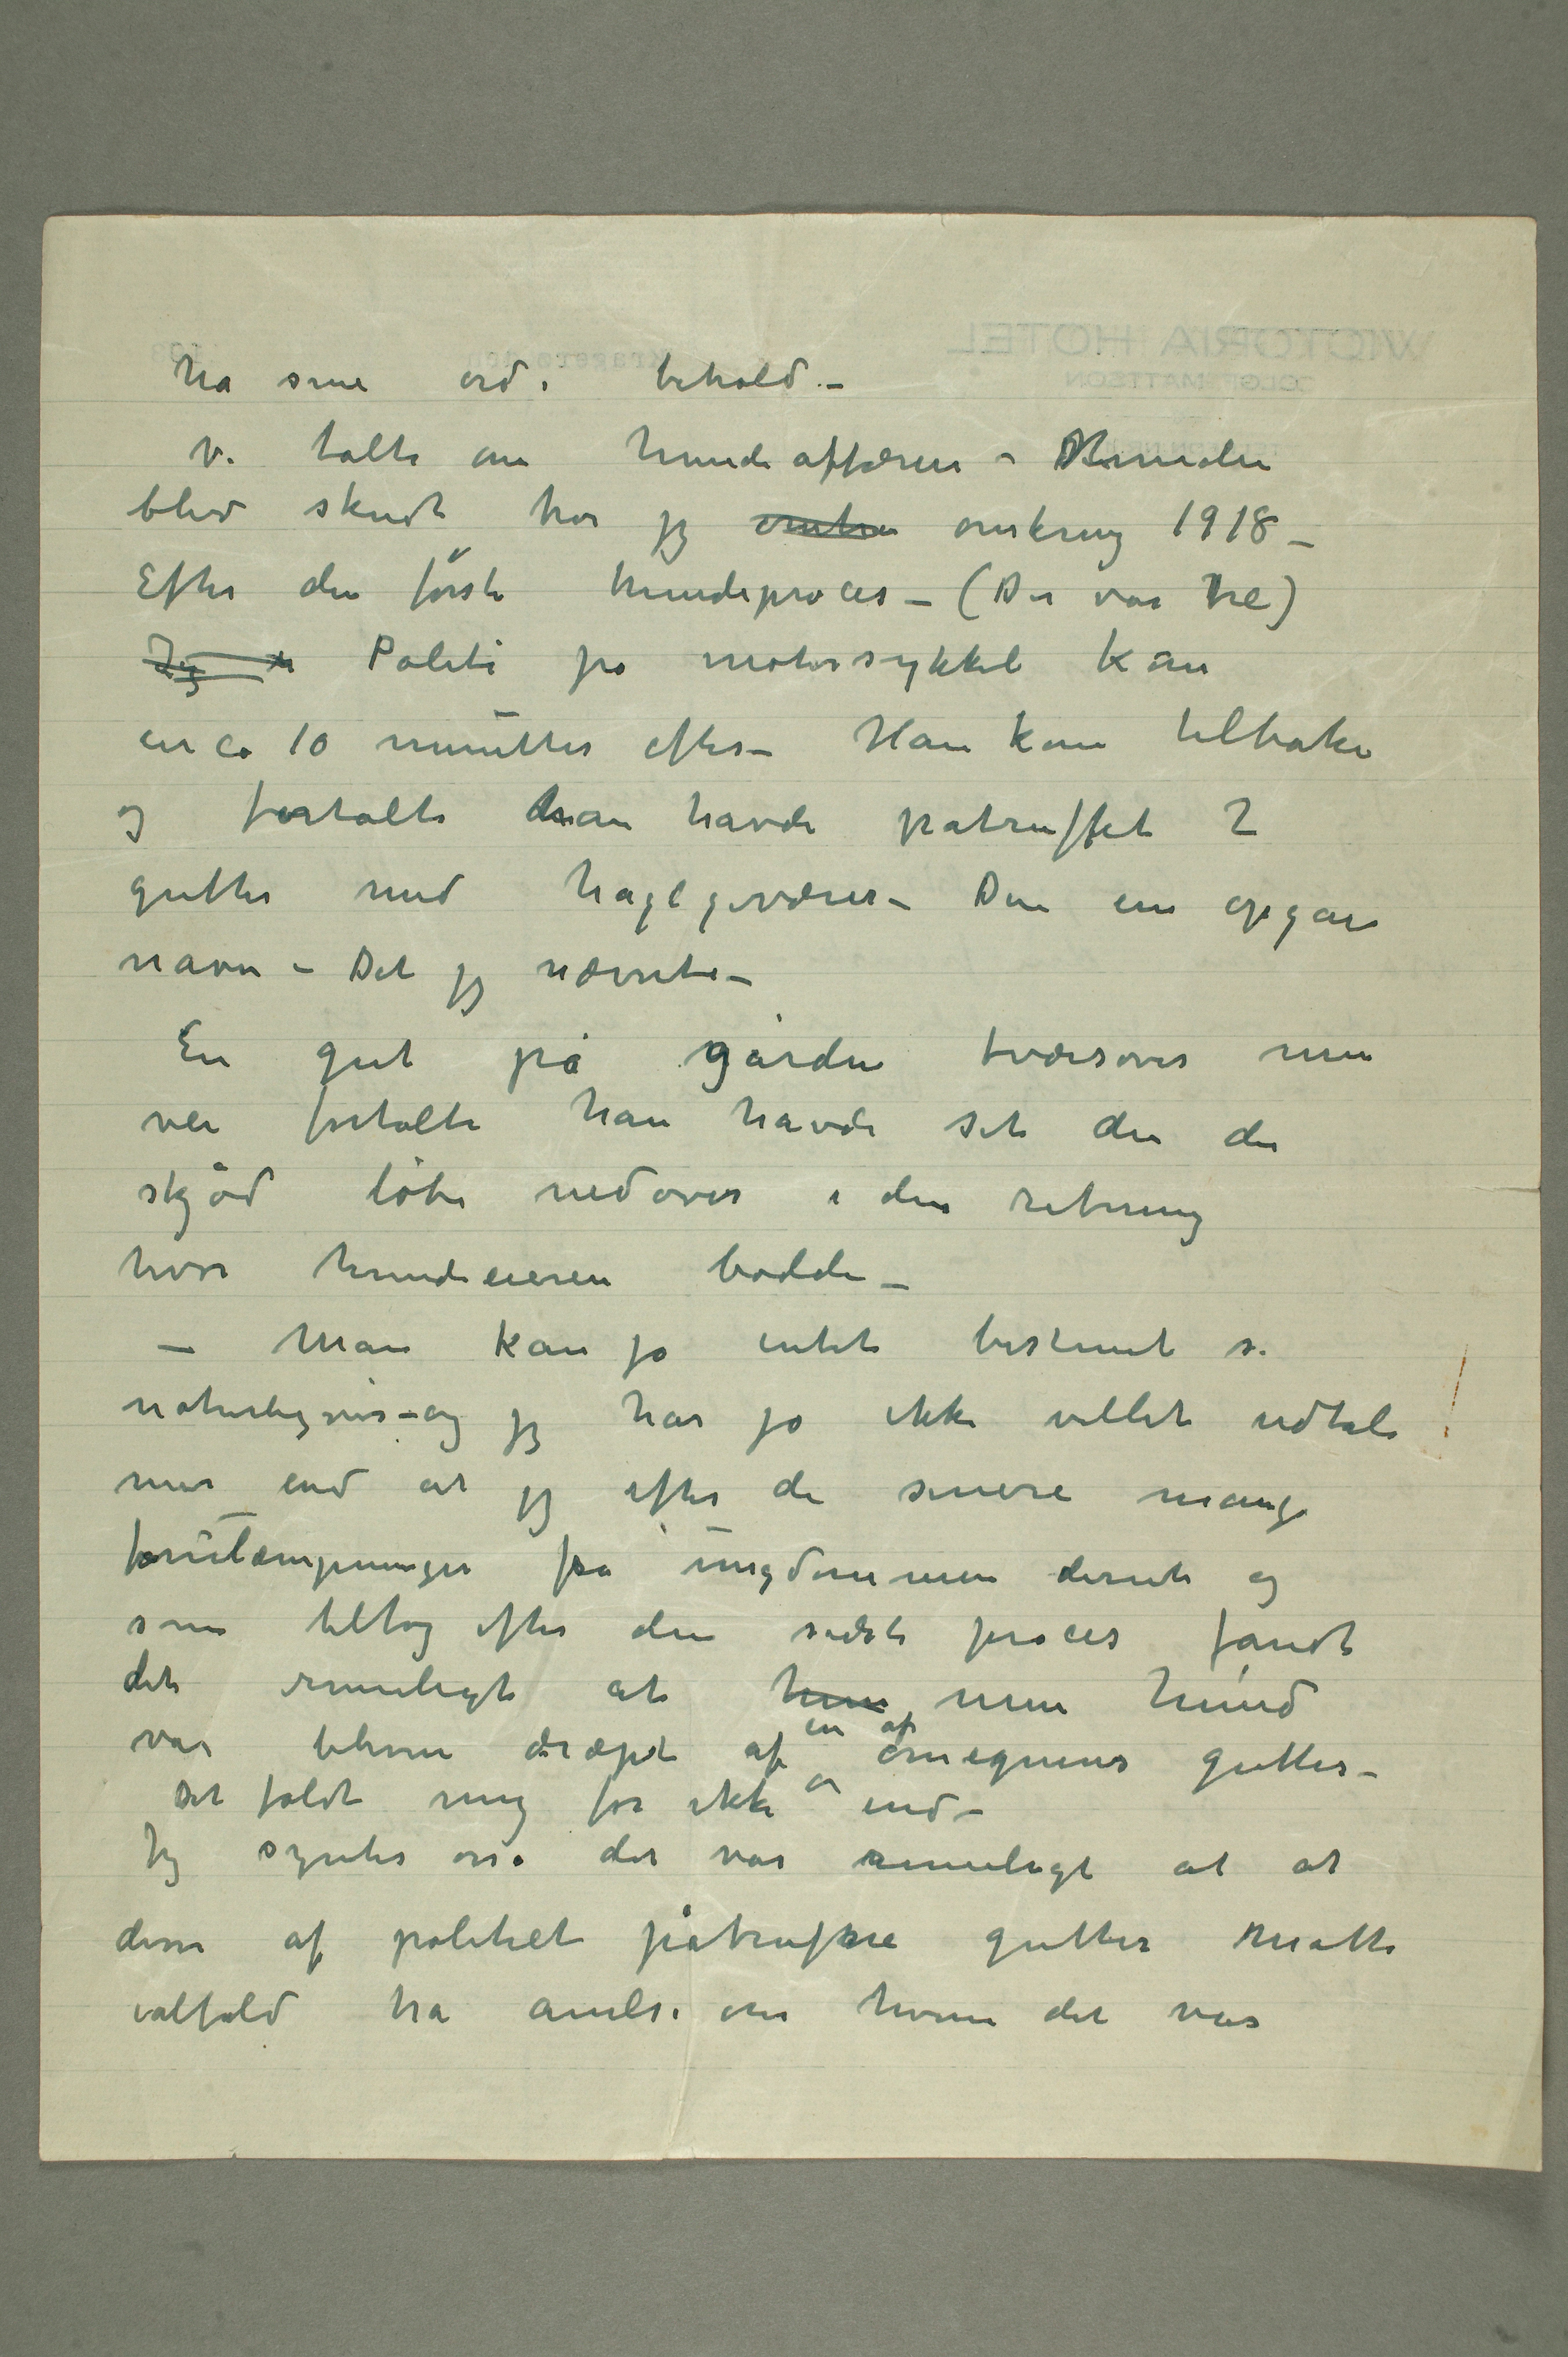 ha sine ord i behold –
Vi talte om hundeaffæren – Hunden
blev skudt tror jeg omkring 1918 –
Efter den første hundeproces – (Der var tre)
Politi på motorsykkel kom
circa 10 minutter efter – Han kom tilbake
og fortalte han havde patruffet 2
gutter med haglgeværer – Den ene opgav
navn – Det jeg nævnte –
En gut på gården tværsover min
vei fortalte han havde set den der
skjød løbe nedover i den retning
hvor hundeeieren bodde –
– Man kan jo intet bestemt si
naturligvis – og jeg har jo ikke villet udtale
mer end at jeg efter de senere mange
forulæmpninger fra ungdommen derute og
som tiltog efter den sidste proces fandt
det rimeligt at min hund
var bleven dræpt af en af omegnens gutter –
Det faldt mig før ikke ind –
Jeg syntes også det var rimeligt at at
disse af politiet påtrufne gutter måtte
ialfald ha anelse om hvem det var
WICTORIA HOTEL
OLGF. MATTSON
Kragerø, den